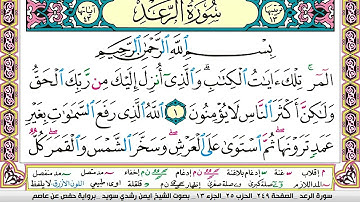 سُورَةُ الرَّعْدِ
بِسْمِ ٱللَّهِ ٱلرَّحْمَٰنِ ٱلرَّحِيمِ
الٓمٓر ۚ تِلْكَ ءَايَٰتُ ٱلْكِتَٰبِ ۗ وَٱلَّذِىٓ أُنزِلَ إِلَيْكَ مِن رَّبِّكَ ٱلْحَقُّ
وَلَٰكِنَّ أَكْثَرَ ٱلنَّاسِ لَا يُؤْمِنُونَ ١ ٱللَّهُ ٱلَّذِى رَفَعَ ٱلسَّمَٰوَٰتِ بِغَيْرِ
عَمَدٍ تَرَوْنَهَا ۖ ثُمَّ ٱسْتَوَىٰ عَلَى ٱلْعَرْشِ ۖ وَسَخَّرَ ٱلشَّمْسَ وَٱلْقَمَرَ ۖ كُلٌّ
سورة الرعد الصفحة ٢٤٩ الجزء ١٣ بصوت الشيخ ايمن رشدي سويد برواية حفص عن عاصم